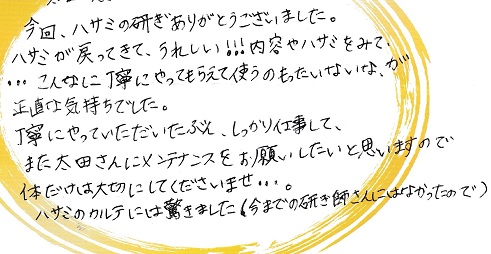 今回、ハサミの研ぎありがとうございました。
ハサミが戻ってきて、うれしい!!!内容やハサミをみて、
…こんなに丁寧にやってもらえて使うのもったいないな、が
正直な気持ちでした。
丁寧にやっていただいたぶん、しっかり仕事して、
また太田さんにメンテナンスをお願いしたいと思いますので
体だけは大切にしてくださいませ…。
ハサミのカルテには驚きました(今までの研ぎ師さんにはなかったので)